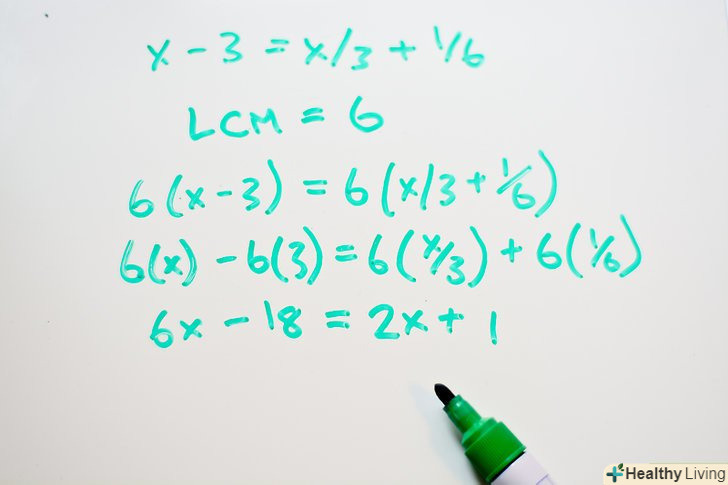 x - 3 = x/3 + 1/6
LCM = 6
6(x - 3) = 6(x/3 + 1/6)
6(x) - 6(3) = 6(x/3) + 6(1/6)
6x - 18 = 2x + 1
Healthy Living